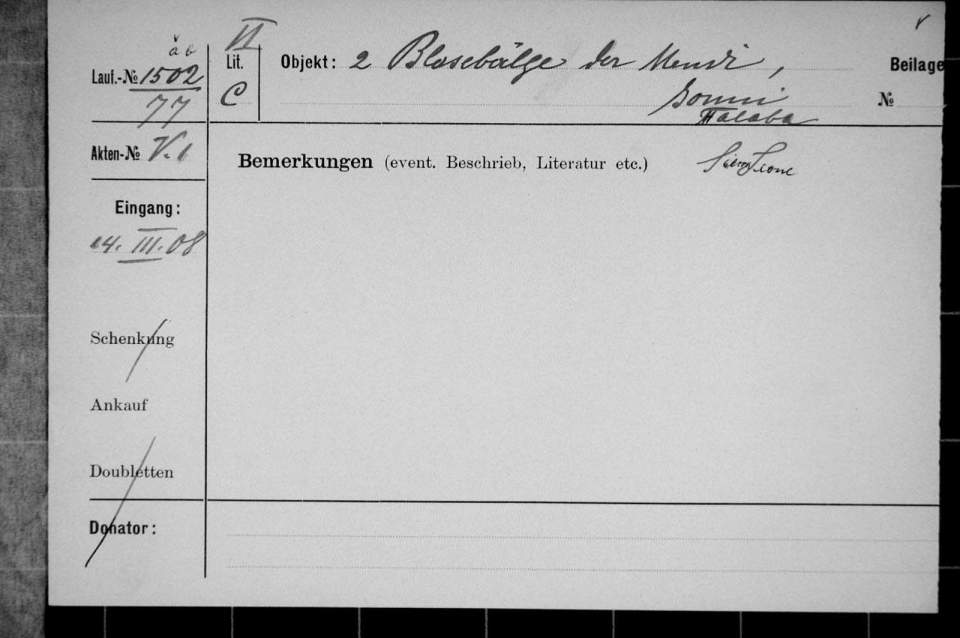 a b
VI
Lauf.-№ 1502
Lit.
Objekt: 2 Blasebälge der Mendi,
Beilage
77
C
№
Halaba
Akten-№ V. 1
Bemerkungen (event. Beschrieb, Literatur etc.)
Sierra Leone
Eingang:
14. III. 08
Schenkung
Ankauf
Doubletten
Donator: